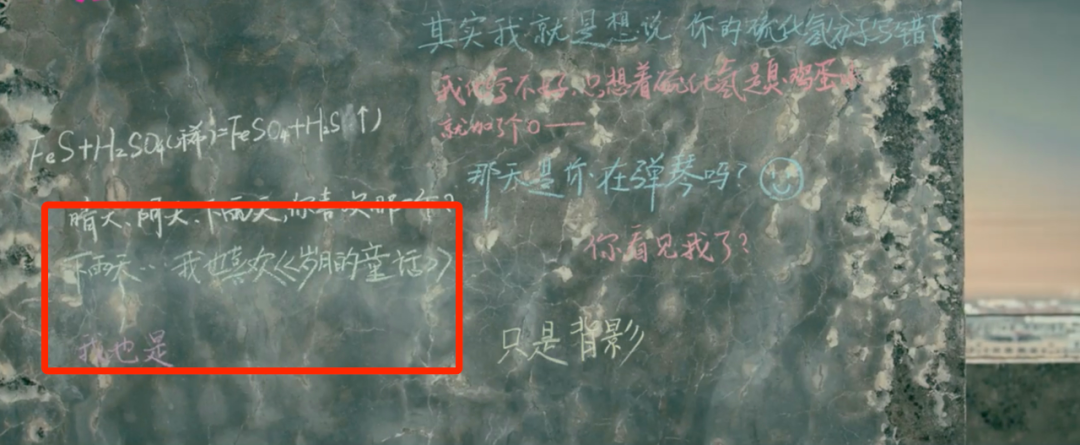 FeS+H₂SO₄(稀)=FeSO₄+H₂S↑)
晴天、阴天、下雨天,你喜欢那一个?
下雨天…我也喜欢《岁月的童话》
我也是
其实我就是想说 你的硫化氢分子写错了
只想着硫化氢是臭鸡蛋
就加了个O——
那天是你在弹琴吗?
你看见我了?
只是背影